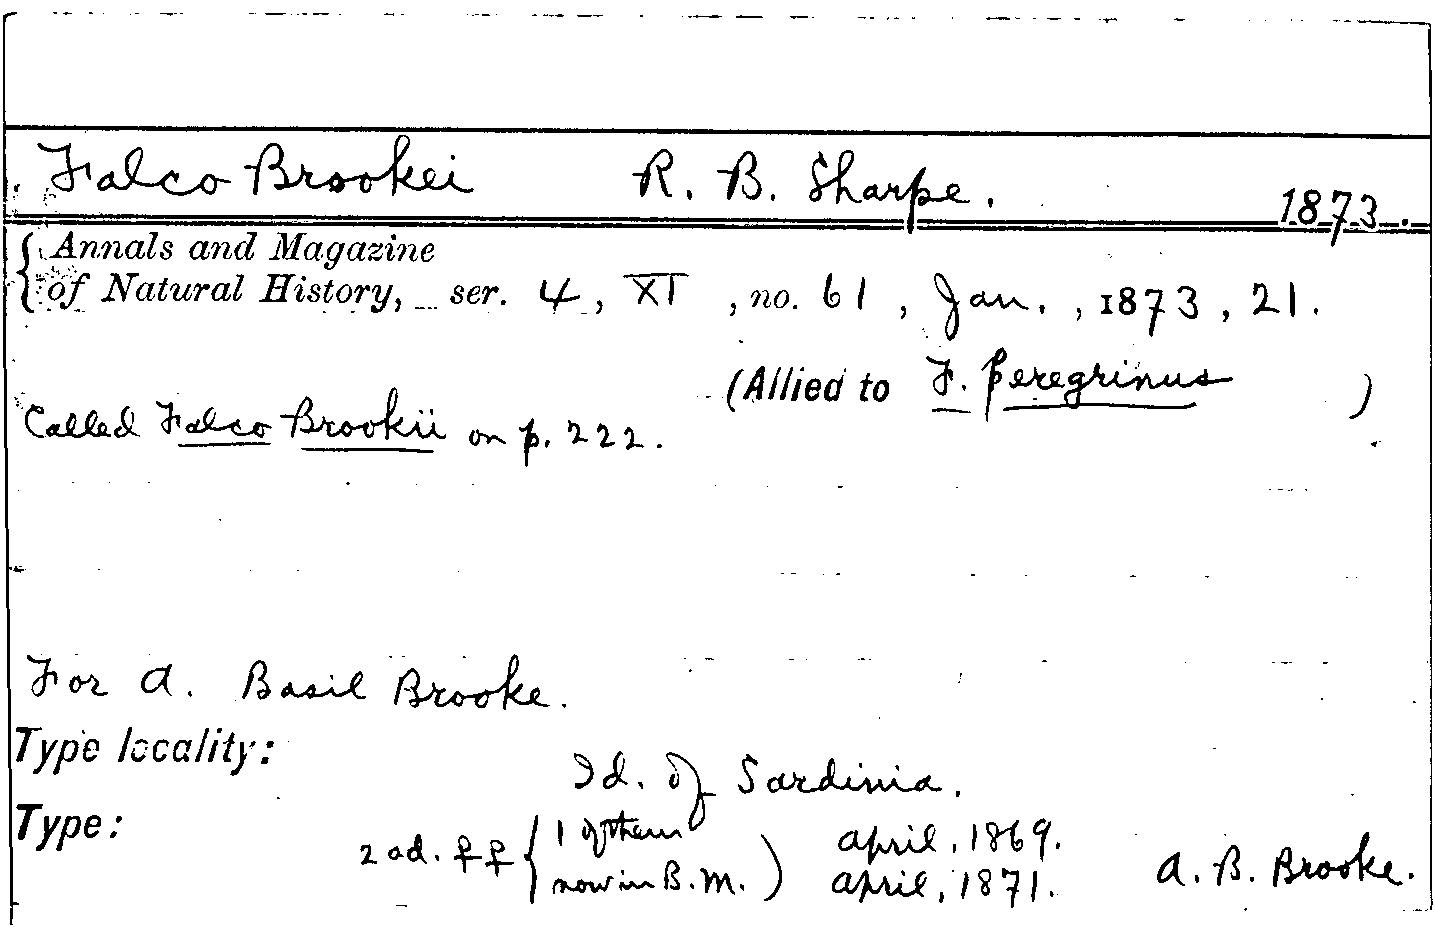 Falco Brookei R. B. Sharpe. 1873.
Annals and Magazine
of Natural History, ser. 4, XI, no. 61, Jan., 1873, 21.
(Allied to F. peregrinus)
Called Falco Brookii on p. 222.
For A. Basil Brooke.
Type locality:
Id. of Sardinia.
Type:
2 ad. ♀♀ { 1 of them ) April, 1869.
now in B.M. April, 1871. A. B. Brooke.